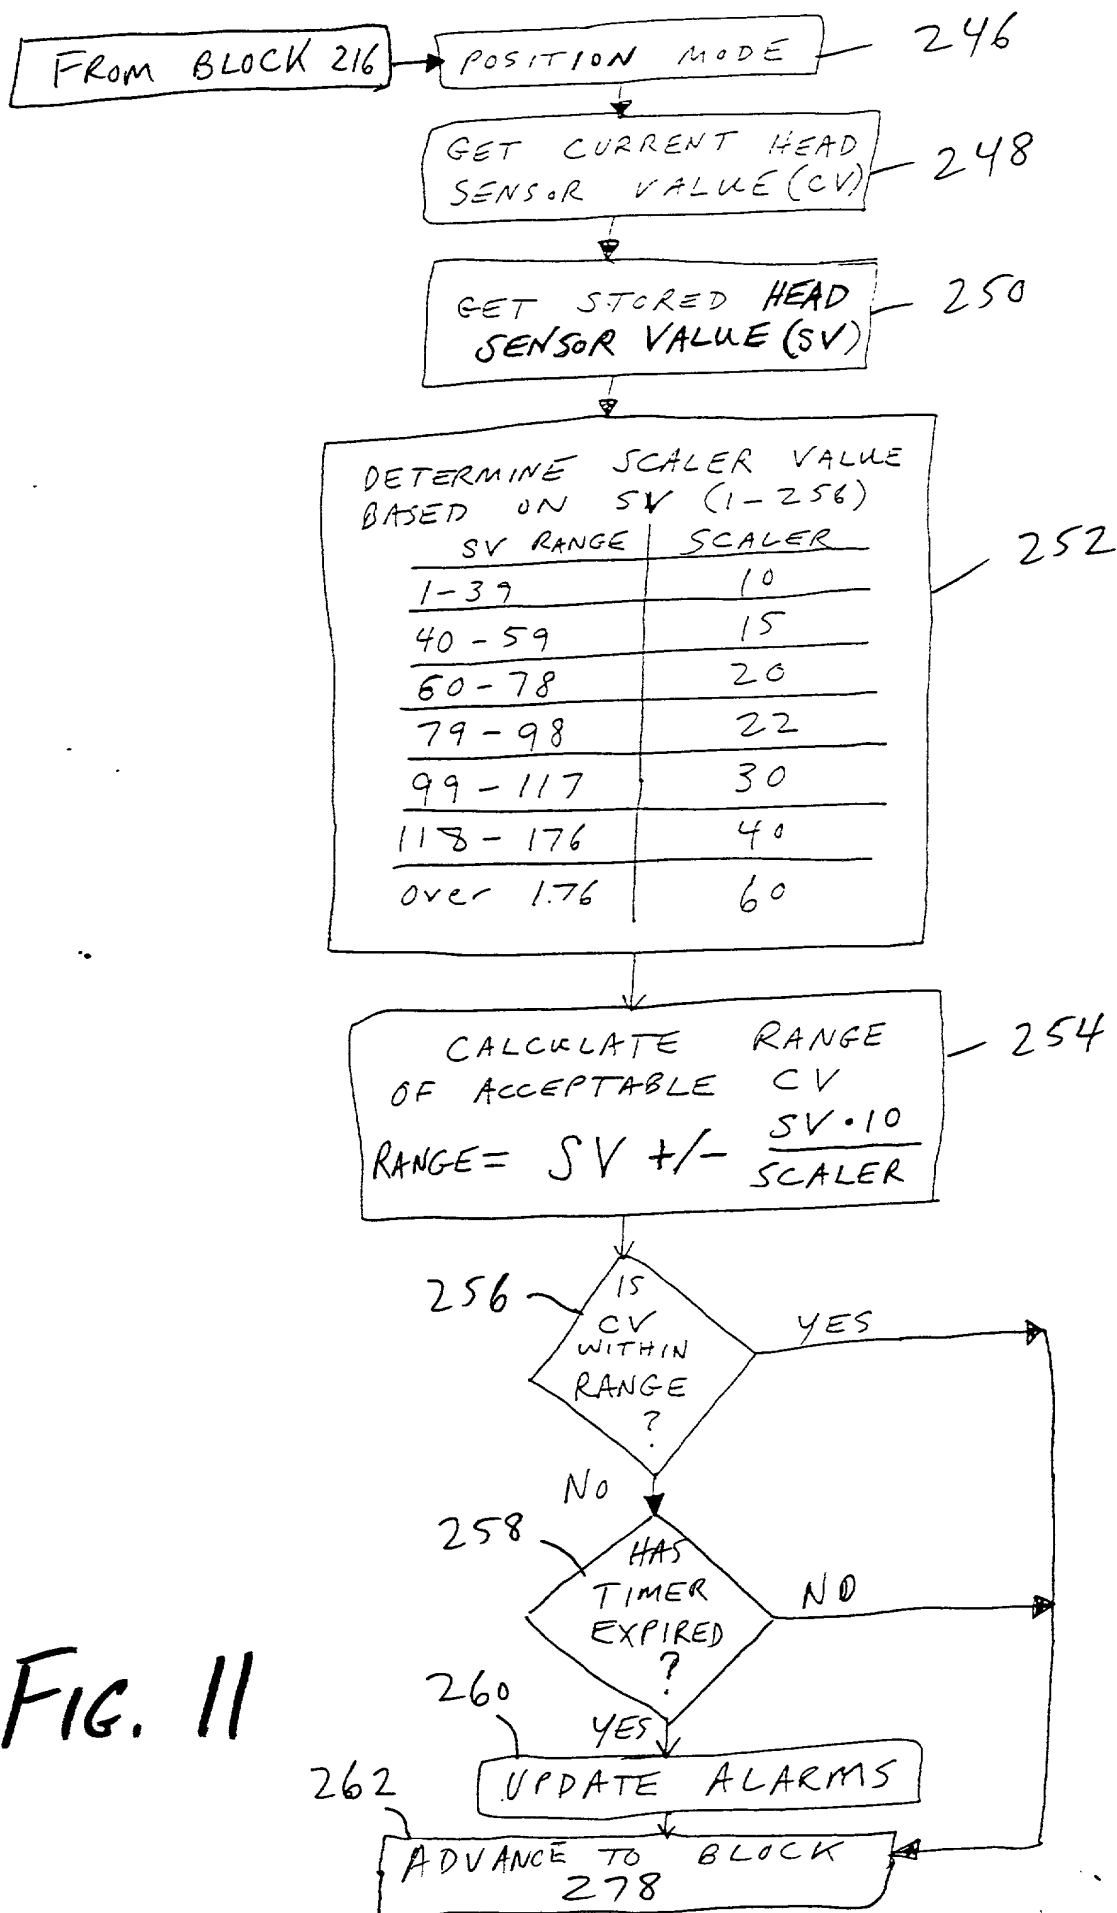 FROM BLOCK 216
POSITION MODE
246
GET CURRENT HEAD
SENSOR VALUE (CV)
248
GET STORED HEAD
SENSOR VALUE (SV)
250
DETERMINE SCALER VALUE
BASED ON SV (1-256)
SV RANGE SCALER
252
1-39 10
40-59 15
60-78 20
79-98 22
99-117 30
118-176 40
over 176 60
CALCULATE RANGE
OF ACCEPTABLE CV
RANGE = SV +/- SV·10
SCALER
254
256
IS
CV
WITHIN
RANGE
?
YES
NO
258
HAS
TIMER
EXPIRED
?
NO
YES
260
UPDATE ALARMS
262
ADVANCE TO BLOCK
278
FIG. 11